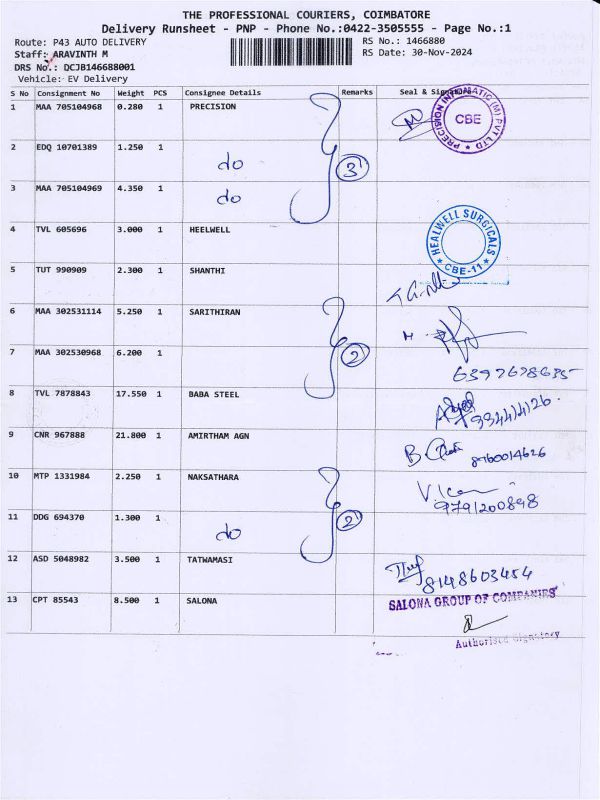 THE PROFESSIONAL COURIERS, COIMBATORE
Delivery Runsheet - PNP - Phone No.:0422-3505555 - Page No.:1
Route: P43 AUTO DELIVERY
RS No.: 1466880
Staff: ARAVINTH M
RS Date: 30-Nov-2024
DRS No.: DCJB146688001
Vehicle: EV Delivery
S No Consignment No Weight PCS Consignee Details Remarks Seal & Signature
1 MAA 705104968 0.280 1 PRECISION
PRECISION INFOMATIC (M) PVT LTD ★ CBE
2 EDQ 10701389 1.250 1 do 3
3 MAA 705104969 4.350 1 do
4 TVL 605696 3.000 1 HEELWELL
HEALWELL SURGICALS ★ CBE-11 ★
5 TUT 990909 2.300 1 SHANTHI
6 MAA 302531114 5.250 1 SARITHIRAN
7 MAA 302530968 6.200 1 2
6397678635
8 TVL 7878843 17.550 1 BABA STEEL
9 CNR 967888 21.800 1 AMIRTHAM AGN
8760014626
10 MTP 1331984 2.250 1 NAKSATHARA
9791200898
11 DDG 694370 1.300 1 do 2
12 ASD 5048982 3.500 1 TATWAMASI
8148603454
13 CPT 85543 8.500 1 SALONA
SALONA GROUP OF COMPANIES
Authorised Signatory